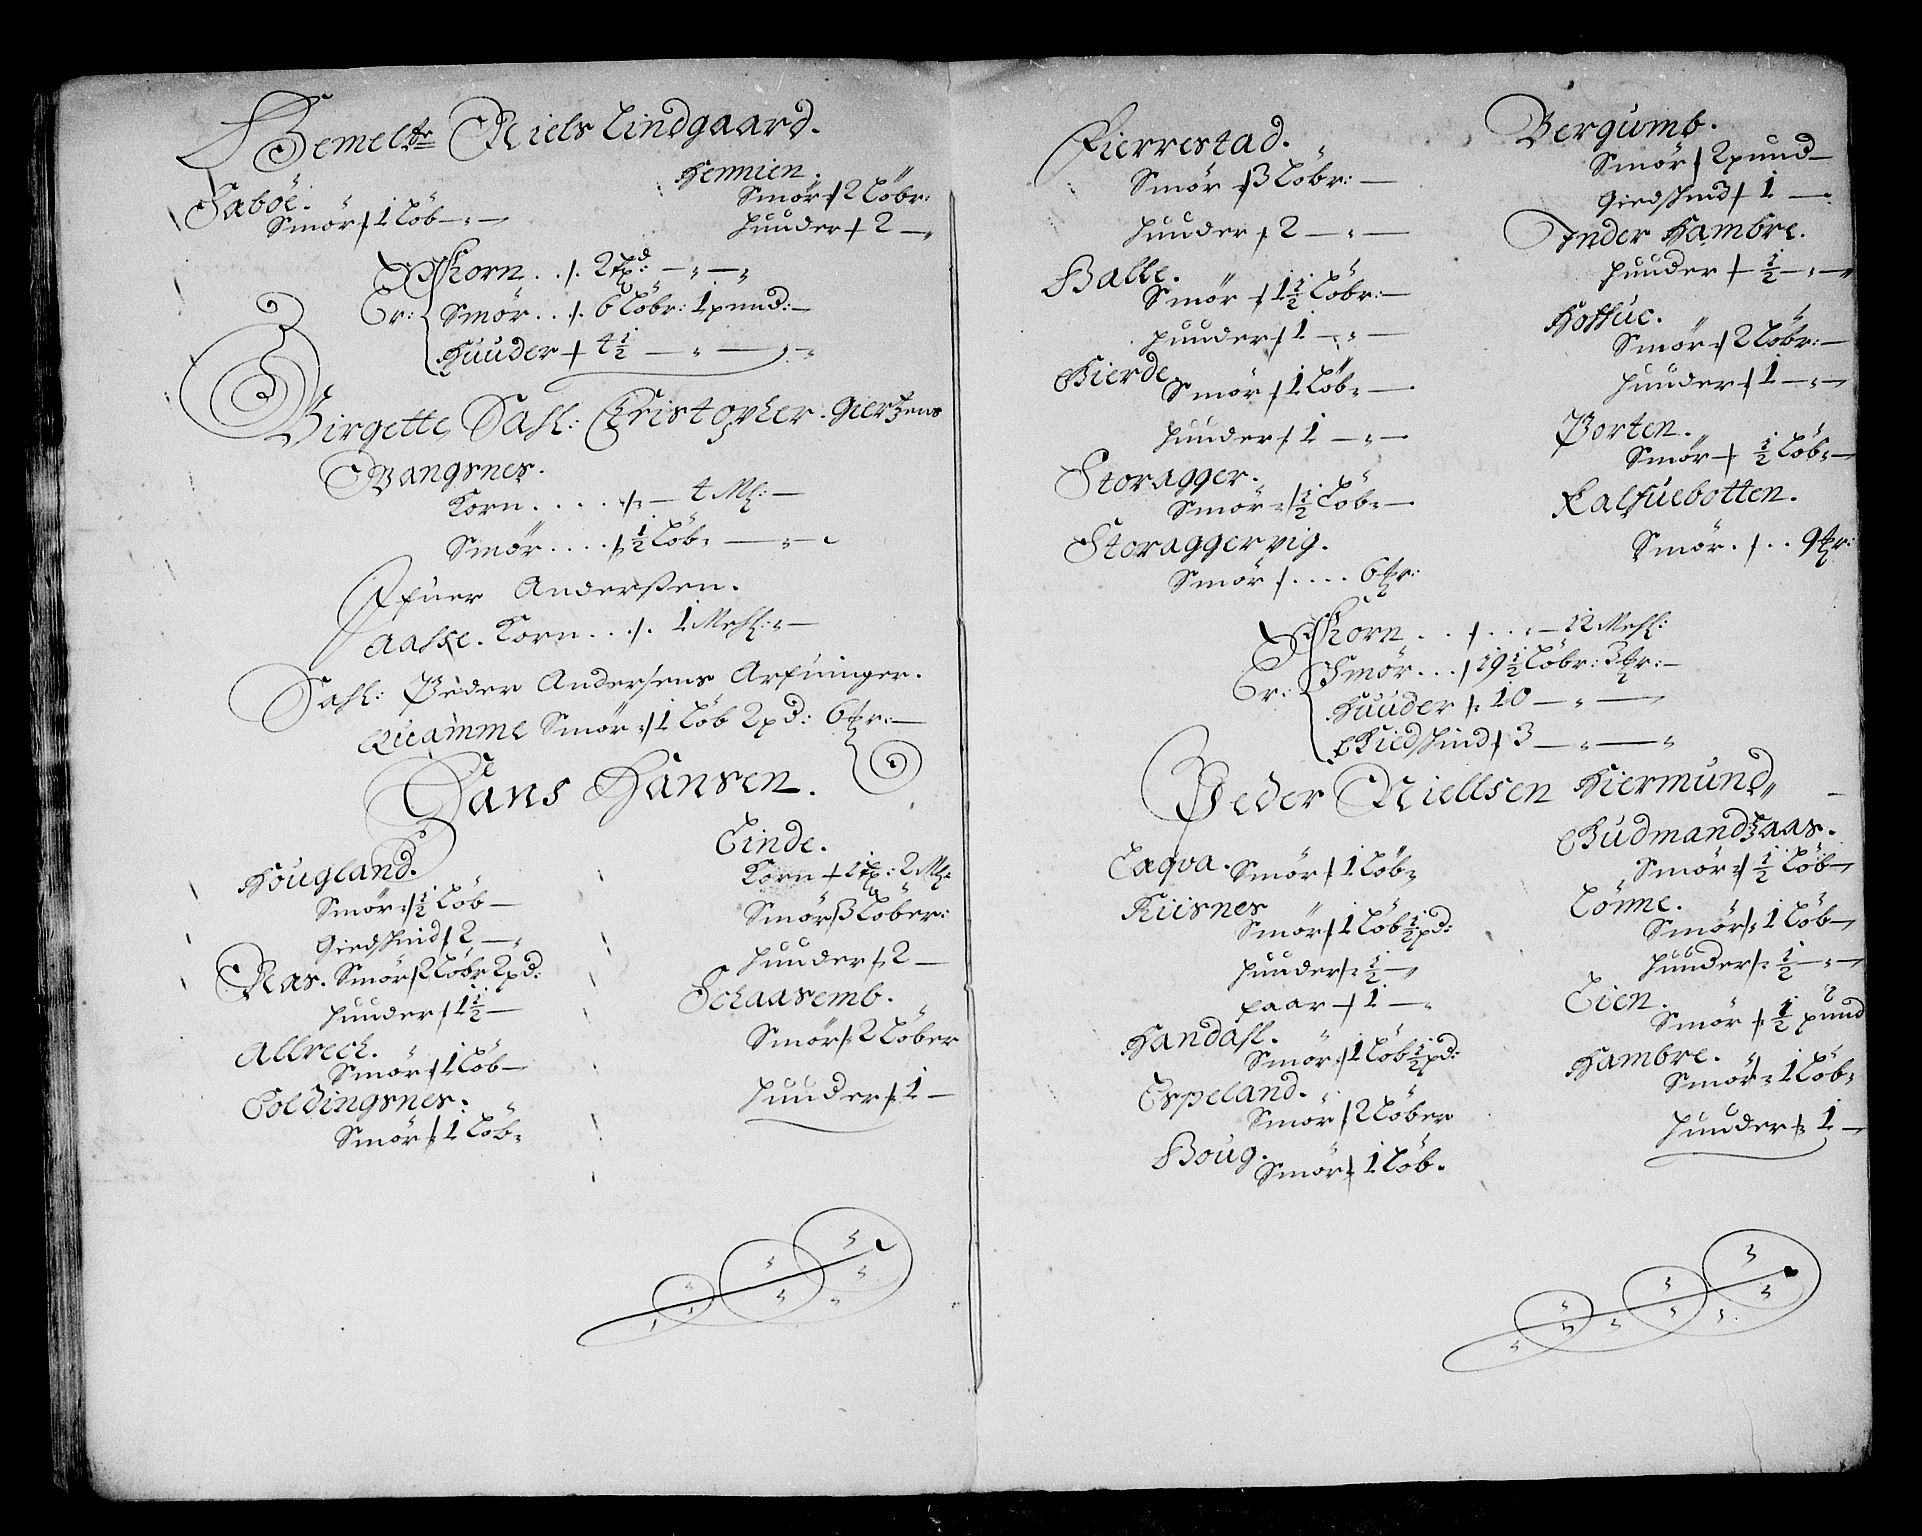 Bemelte Niels Lindgaard.
Saböe.
Smör 1 Löb
Hemmien.
Smör 2 Löbr:
Huuder 2
Korn . . 2 tpd:
Er: Smör . . 6 Löbr: 1 pund:
Huuder 4 1/2
Birgette Sahl: Christopher Giertzens
Wangsnes.
Korn . . . . . 4 Ml:
Smör . . . . 1/2 Löb
Ifuer Anderßen.
Aaske. Korn . . . 1 Mehl:
Sahl: Peder Andersens Arfuinger.
Quamme Smör 1 Löb 2 pd: 6 tr:
Hans Hansen.
Hougland.
Smör 1/2 Löb
Giedskind 2
Næs. Smör 2 Löbr 2 pd:
Huuder 1 1/2
Allrech.
Smör 1 Löb
Coldingsnes.
Smör 1 Löb
Linde.
Korn 1 tp: 2 Ml:
Smör 3 Löber:
Huuder 2
Schaasemb.
Smör 2 Löber
Huuder 1
Fierrestad.
Smör 3 Löbr:
Huuder 2
Balle.
Smör 1 1/2 Löbr:
Huuder 1
Gierde
Smör 1 Löb
Huuder 1
Storagger.
Smör 1/2 Löb
Storaggervig.
Smör . . . . 6 tr:
Bergumb.
Smör 2 pund
Giedskind 1
Inder Hambre.
Huuder 1/2
Hoffue.
Smör 2 Löbr:
Huuder 1
Porten.
Smör 1/2 Löb
Kalfuebotten.
Smör . . . 9 tr:
Korn . . . . 12 Mehl:
Er: Smör . . . 19 1/2 Löbr: 3 tr:
Huuder 10
Giedskind 3
Peder Niellsen Hiermund
Taqva. Smör 1 Löb
Riisnes
Smör 1 Löb 1/2 pd:
Huuder 1/2
paar 1
Handahl.
Smör 1 Löb 1/2 pd:
Espeland.
Smör 2 Löber
Boug.
Smör 1 Löb.
Gudmandzaas.
Smör 1/2 Löb
Lönne.
Smör 1 Löb
Huuder 1/2
Eien.
Smör 1/2 pund
Hambre.
Smör 1 Löb
Huuder 1